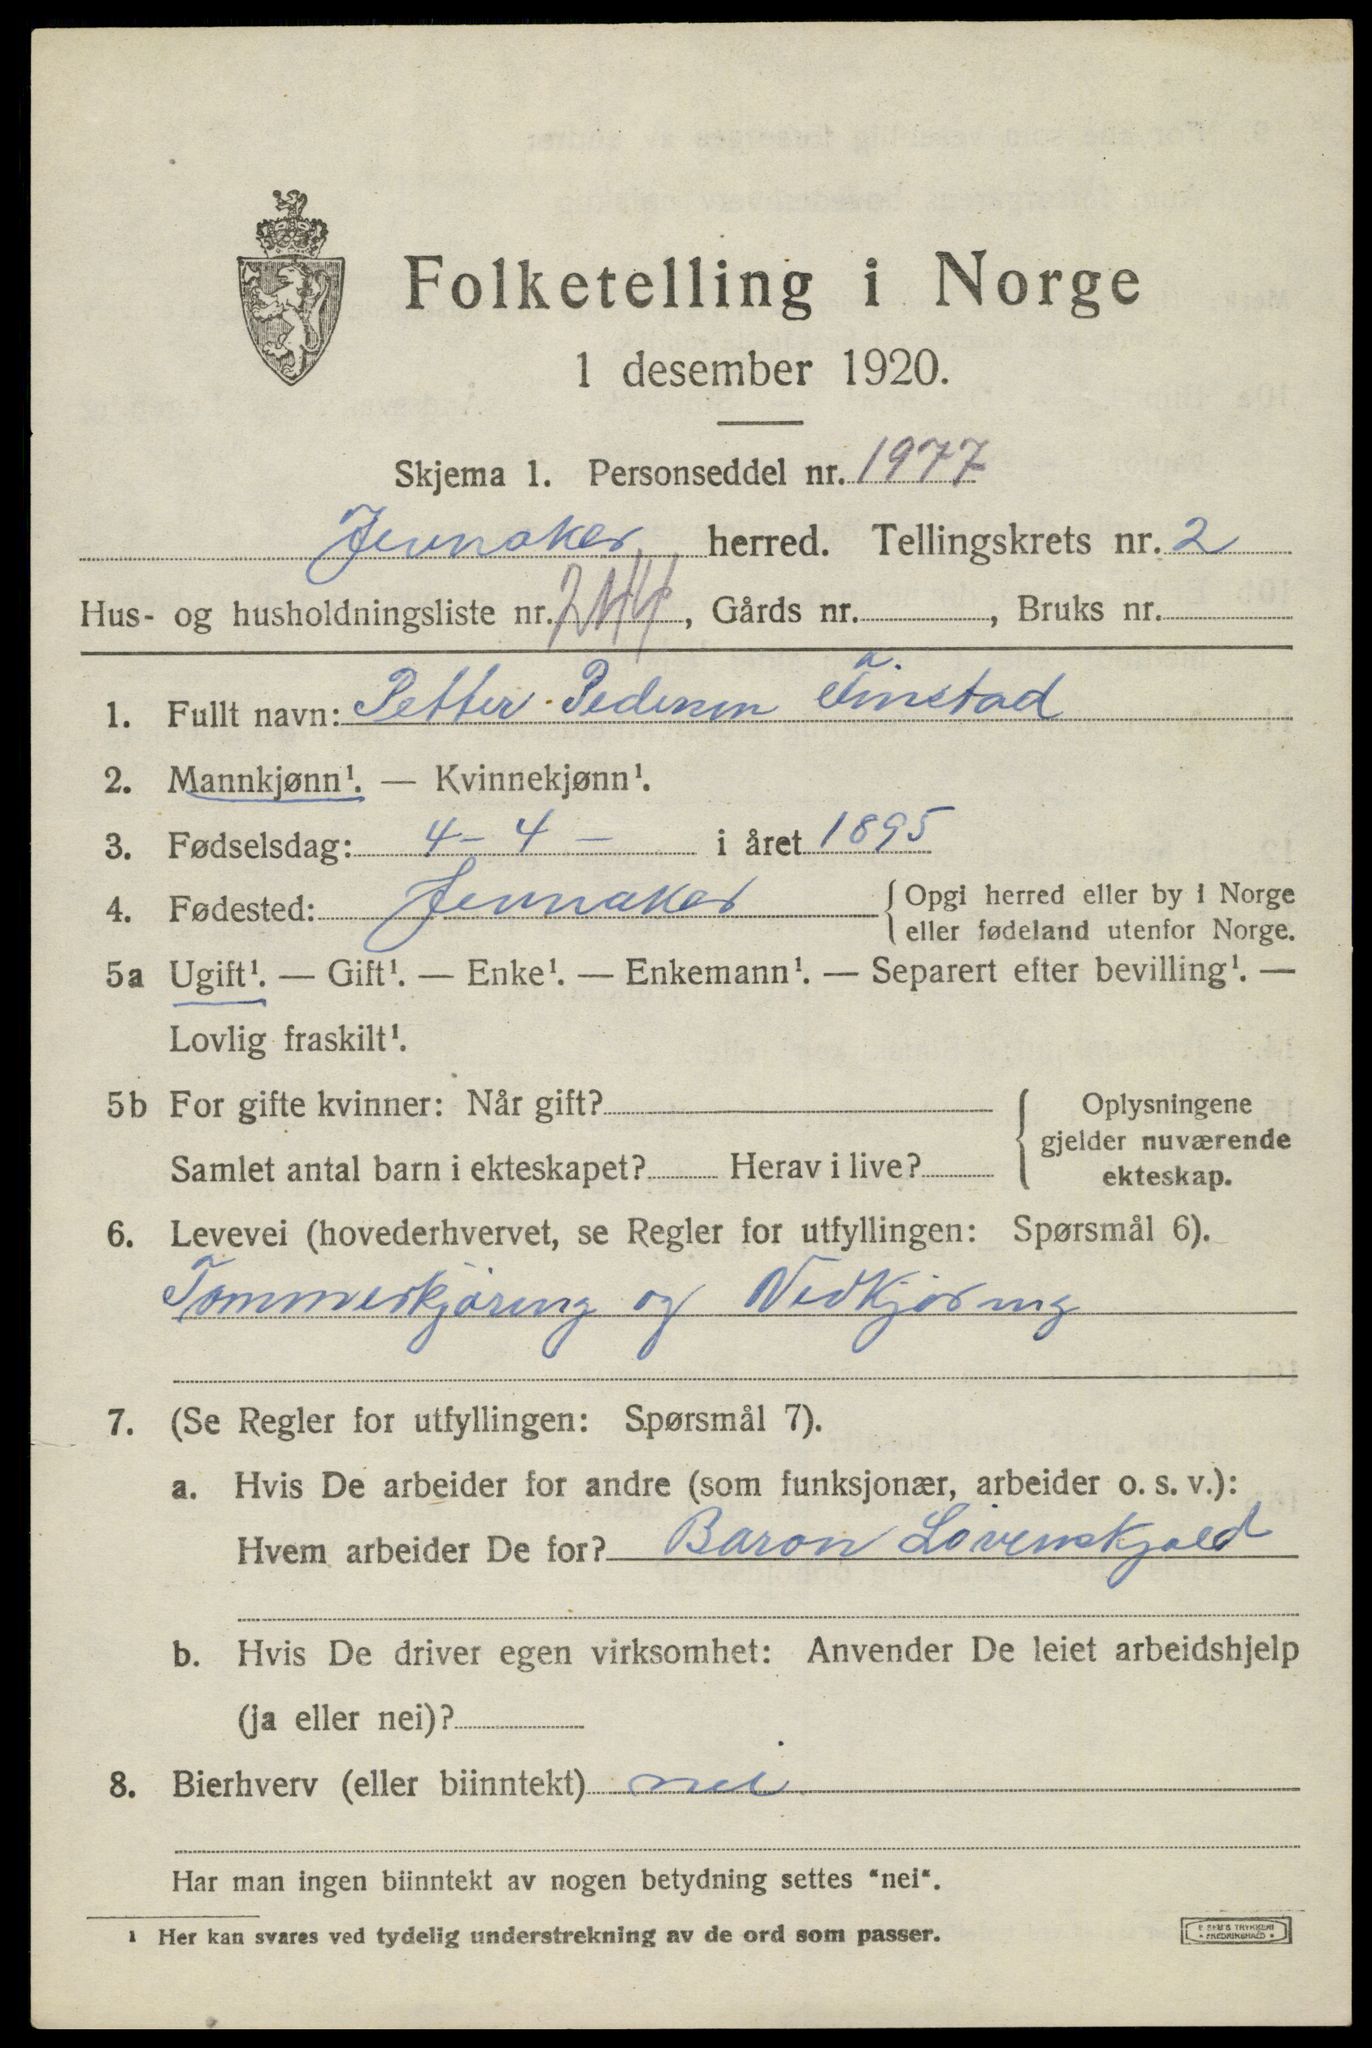 Folketelling i Norge
1 desember 1920.
Skjema 1. Personseddel nr. 1977
Jevnaker herred. Tellingskrets nr. 2
Hus- og husholdningsliste nr. 244, Gårds nr. , Bruks nr.
1. Fullt navn: Petter Pedersen Finstad
2. Mannkjønn¹. — Kvinnekjønn¹.
3. Fødselsdag: 4 - 4 - i året 1895
4. Fødested: Jevnaker { Opgi herred eller by i Norge
eller fødeland utenfor Norge.
5a Ugift¹. — Gift¹. — Enke¹. — Enkemann¹. — Separert efter bevilling¹. —
Lovlig fraskilt¹.
5b For gifte kvinner: Når gift? { Oplysningene
gjelder nuværende
Samlet antal barn i ekteskapet? Herav i live? ekteskap.
6. Levevei (hovederhvervet, se Regler for utfyllingen: Spørsmål 6).
Tømmerkjøring og Vedkjøring
7. (Se Regler for utfyllingen: Spørsmål 7).
a. Hvis De arbeider for andre (som funksjonær, arbeider o. s. v.):
Hvem arbeider De for? Baron Løvenskjold
b. Hvis De driver egen virksomhet: Anvender De leiet arbeidshjelp
(ja eller nei)?
8. Bierhverv (eller biinntekt) nei
Har man ingen biinntekt av nogen betydning settes "nei".
¹ Her kan svares ved tydelig understrekning av de ord som passer.
E SEM'S TRYKKERI
* FREDRIKSHALD *